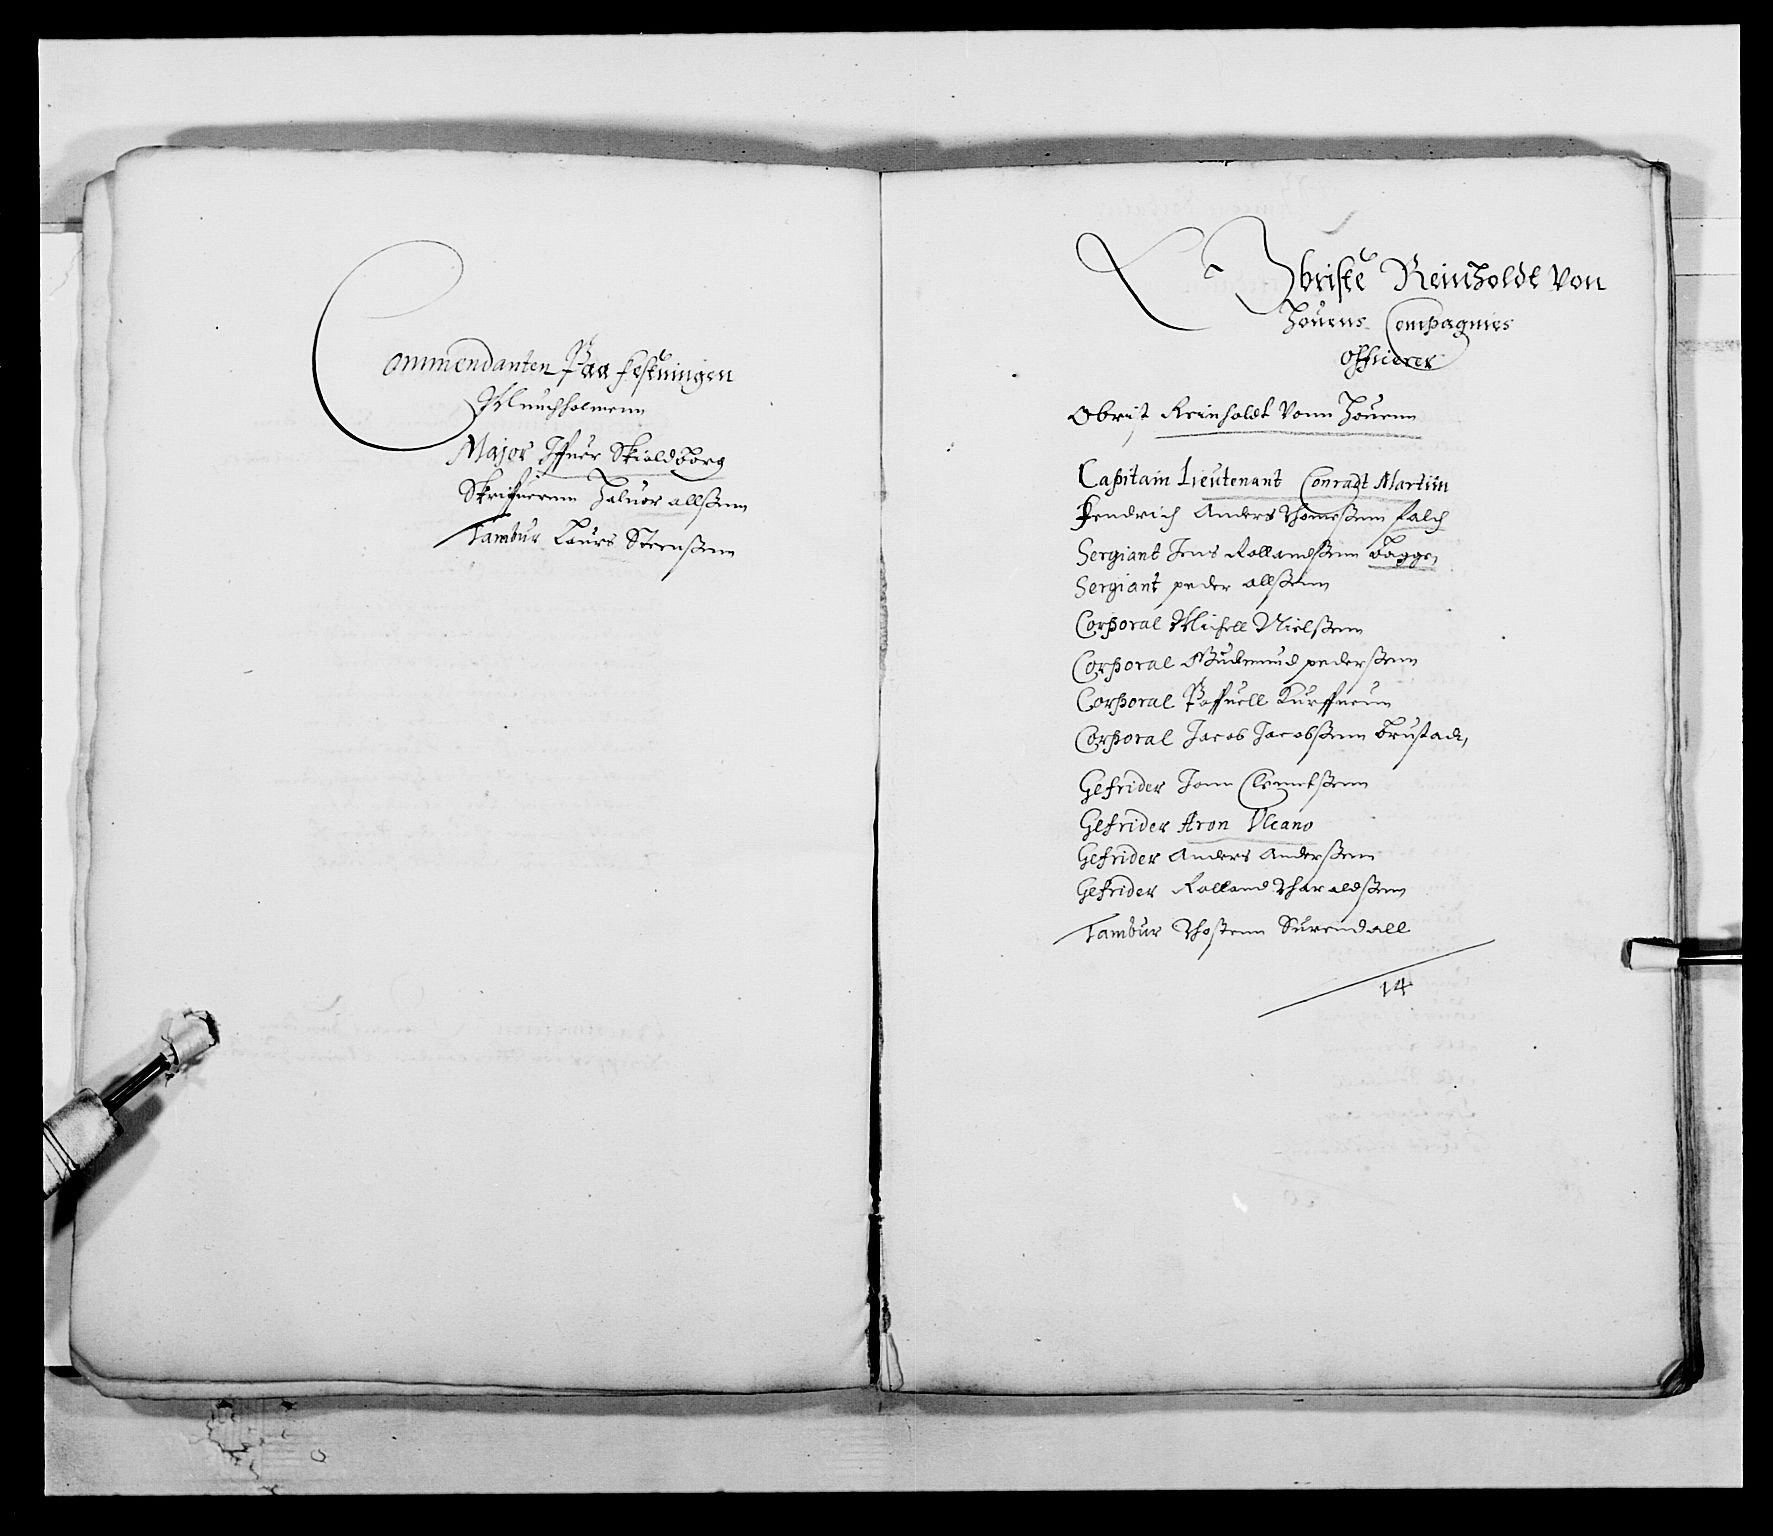 Commendanten Paa festningen
Munchholmenn
Major Iffuer Skioldborg
Skriffuerenn Haluor allssenn
Tambur Laurs Steenssenn
Obriste Reinholdt Von
Houens Compagnies
officerer
Obrist Reinholdt Vonn Houenn
Capitain Lieutenant Conradt Martiin
Fendrich Anders Thomessenn falch
Sergiant Jens Rollandssenn Bagge,
Sergiant peder allssenn
Corporal Michell Nielssenn
Corporal Gudmund pederssenn
Corporal Paffuell
Corporal Jacob Jacobssenn Brustad,
Gefrider Jonn Clemetssenn
Gefrider Aron Vlcano
Gefrider Anders Anderssenn
Gefrider Rolland Tharaldssenn
Tambur Thostenn Surendall
14